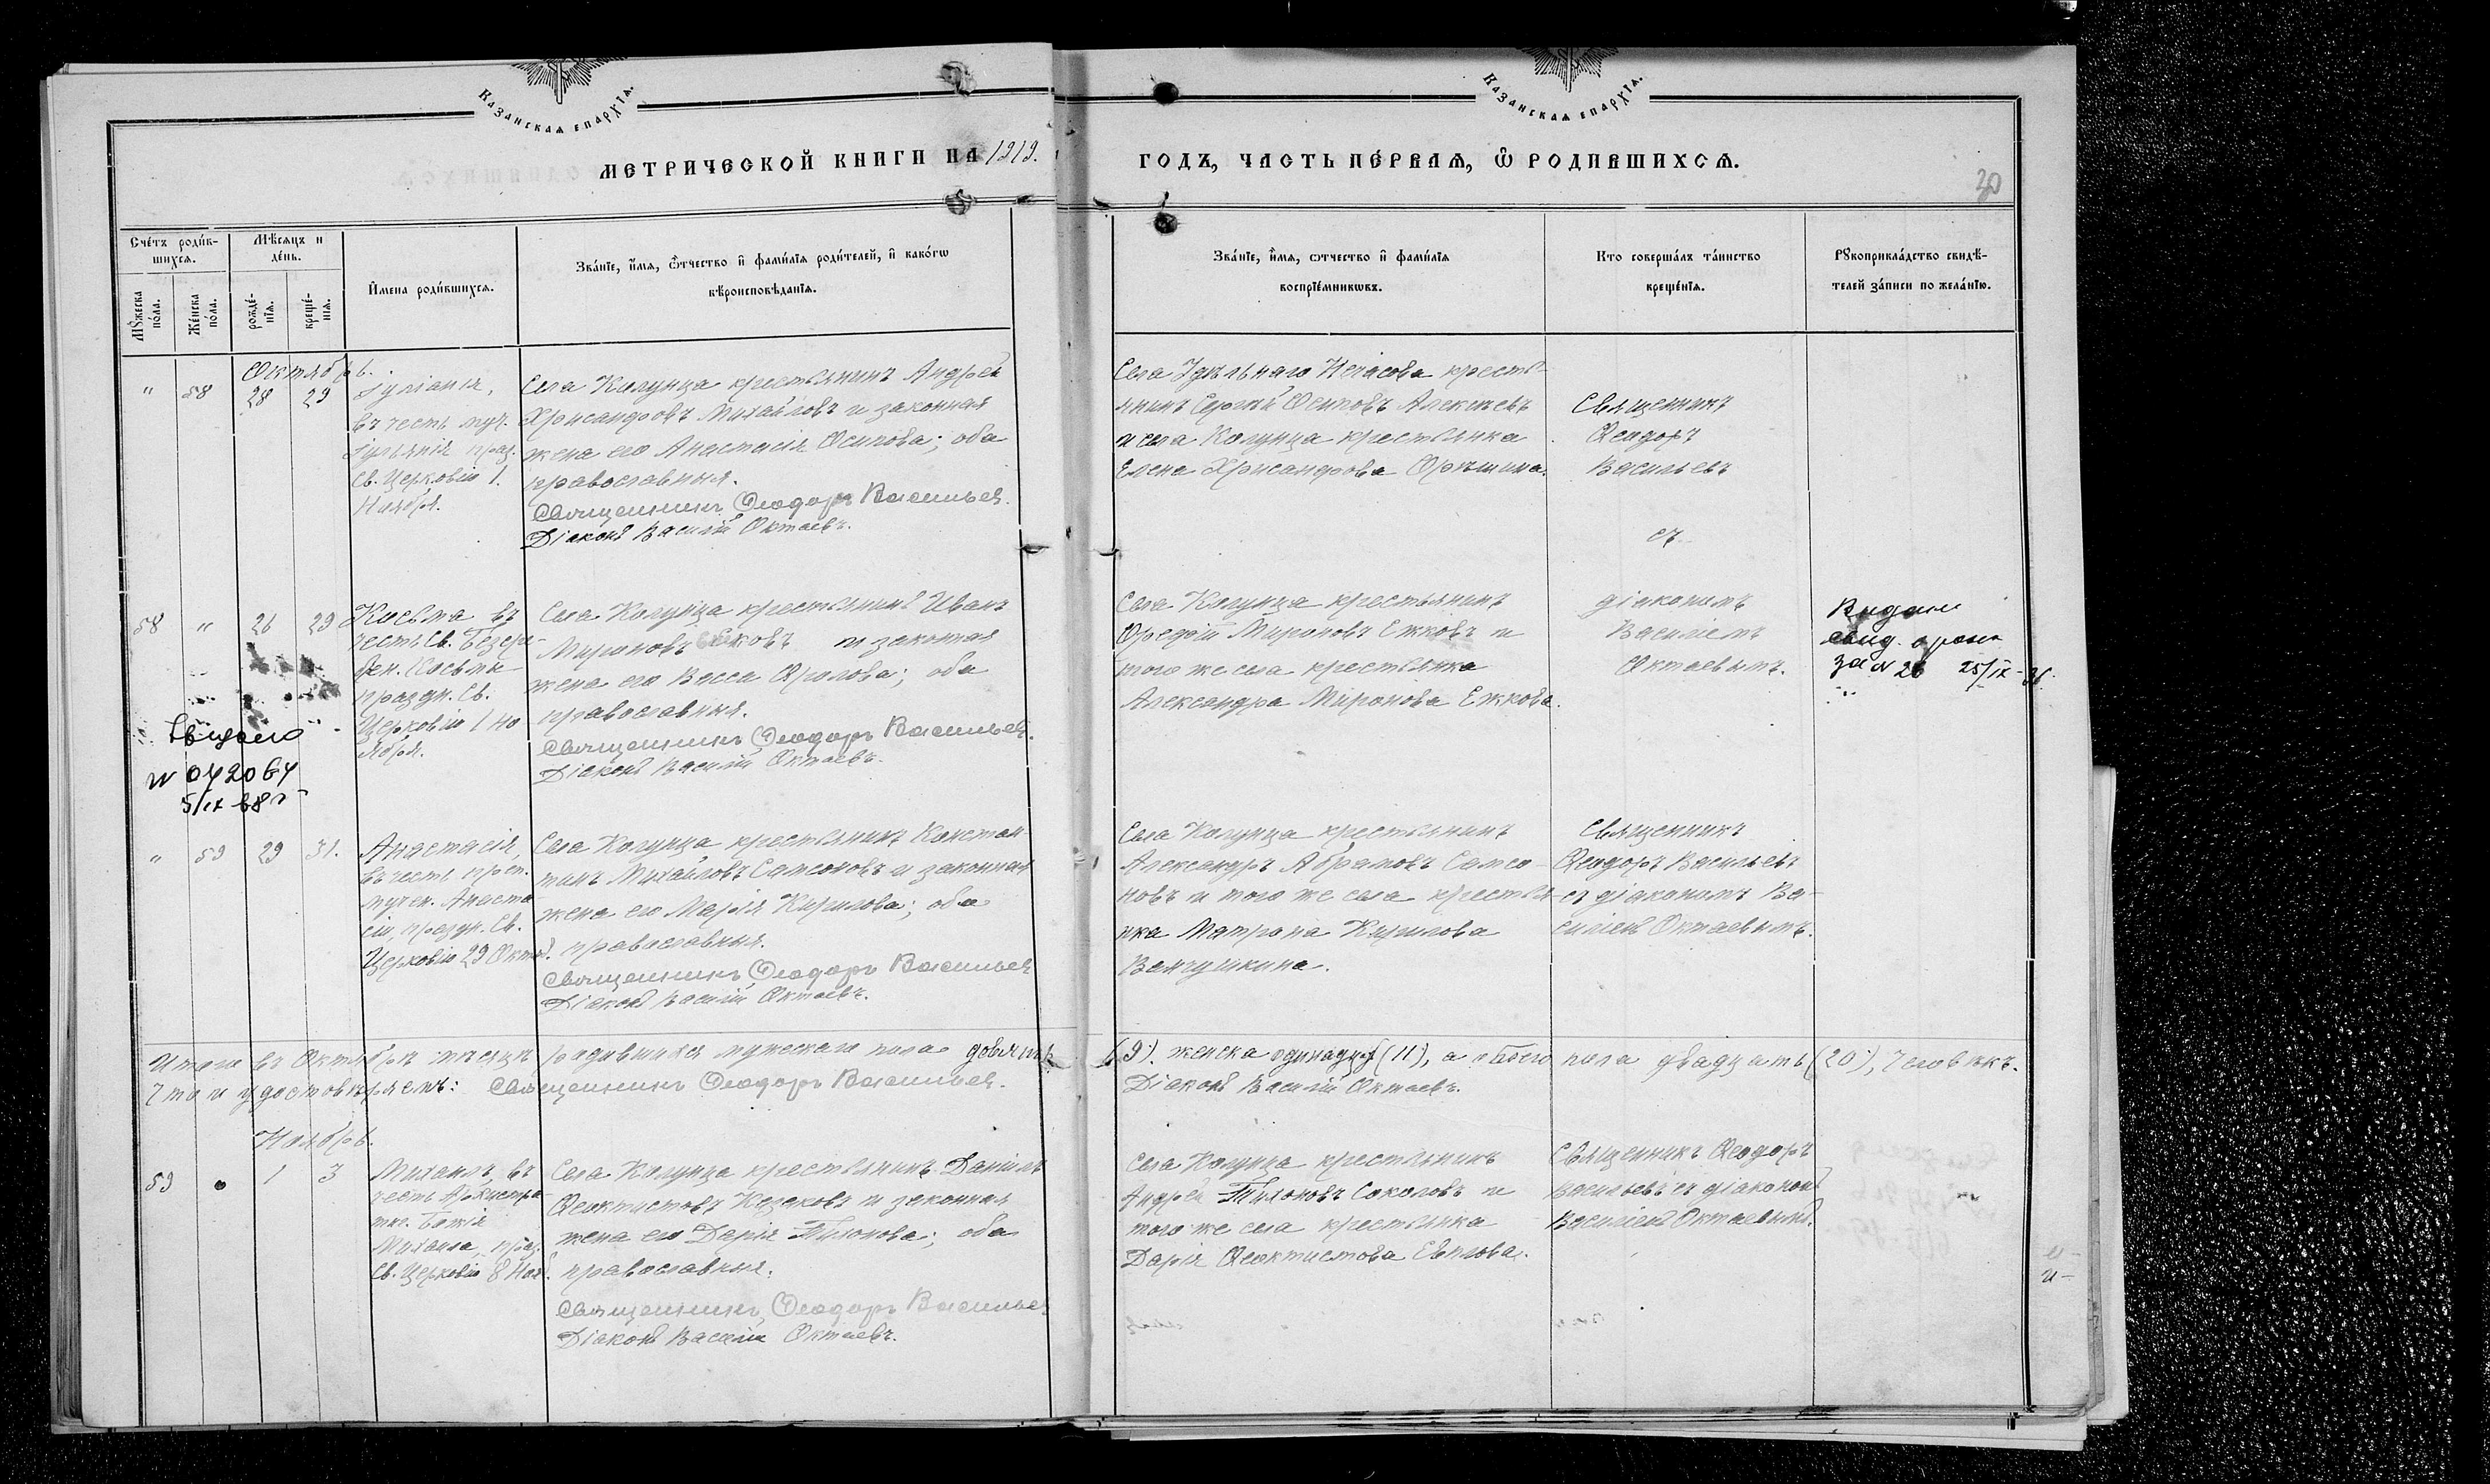 Казанская епархїя.
Казанская епархїя.
МЕТРИЧЕСКОЙ КНИГИ НА 1919.
ГОДЪ, ЧАСТЬ ПЕ́РВАЯ, Ѽ РОДИВШИХСЯ.
30
Сче́тъ роди́в-
шихся.
Мѣ́сяцъ и
де́нь.
Имена роди́вшихся.
Зва́нїе, и҆мя, ѻтчество и҆ фами́лїя роди́телей, и҆ како́гѡ
вѣроисповѣданїя.
Мꙋжеска
по́ла.
Же́нска
по́ла.
рожде́-
нїя.
креще́-
нїя.
Зва́нїе, и҆мя, ѻтчество и҆ фами́лїя
воспрїе́мникѡвъ.
Кто соверша́лъ та́инство
креще́нїя.
Рꙋкоприкла́дство свидѣ́-
телей за́писи по жела́нїю.
Октябрь.
" 58 28 29
Іуліанія,
въ честь муч.
Іульянія праз.
Св. Церковію 1.
Ноября.
Села Колунца крестьянинъ Андрей
Хрисанфовъ Михайловъ и законная
жена его Анастасія Осипова; оба
православныя.
Священникъ Ѳеодоръ Васильев.
Діаконъ Василій Октаевъ.
Села Удѣльнаго Нечасова кресть-
янинъ Сергѣй Осиповъ Алексѣевъ
и села Колунца крестьянка
Елена Хрисанфова Орѣшина.
Священникъ
Ѳеодоръ
Васильевъ
съ
діакономъ
Василіемъ
Октаевымъ.
58 " 26 29
Косьма въ
честь Св. Безсре-
бен. Косьмы
праздн. Св.
Церковію 1 Но
ября.
Села Колунца крестьянинъ Иванъ
Мироновъ Ежковъ и законная
жена его Васса Фролова; оба
православныя.
Священникъ Ѳеодоръ Васильев.
Діаконъ Василій Октаевъ.
Села Колунца крестьянинъ
Мироновъ Ежковъ и
того же села крестьянка
Александра Миронова Ежкова.
Выдан
свид. о рожд
за № 26 25/IX-
№ 042064
5/IX 68 г
" 59 29 31.
Анастасія,
въ честь преп.
мучен. Анаста
сіи, праздн. Св.
Церковію 29 Октяб.
Села Колунца крестьянинъ Констан-
тинъ Михайловъ Самсоновъ и законная
жена его Марія Кирилова; оба
православныя.
Священникъ Ѳеодоръ Васильев
Діаконъ Василій Октаевъ.
Села Колунца крестьянинъ
Александръ Абрамовъ Самсо-
новъ и того же села крестья-
нка Матрона Кирилова
Ванчушкина.
Священникъ
Ѳеодоръ Васильевъ
съ діакономъ Ва-
силіемъ Октаевымъ.
Итого въ Октябрѣ мѣсяцѣ родившихся мужескаго пола девять (9). женска одинадцать (11), а обоего пола двадцать (20), человѣкъ.
Что и удостовѣряемъ: Священникъ Ѳеодоръ Васильев. Діаконъ Василій Октаевъ.
Ноябрь.
59 1 3
Михаилъ, въ
честь Архистра-
тиг. Божія
Михаила, праз.
Св. Церковію 8 Ноя.
Села Колунца крестьянинъ Даніилъ
Ѳеоктистовъ Казаковъ и законная
жена его Дарія Тихонова; оба
православныя.
Священникъ Ѳеодоръ Васильев
Діаконъ Василій Октаевъ.
Села Колунца крестьянинъ
Андрей Тихоновъ Соколовъ и
того же села крестьянка
Дарія Ѳеоктистова Евплова.
Священникъ Ѳеодоръ
Васильевъ съ діакономъ
Василіемъ Октаевымъ.